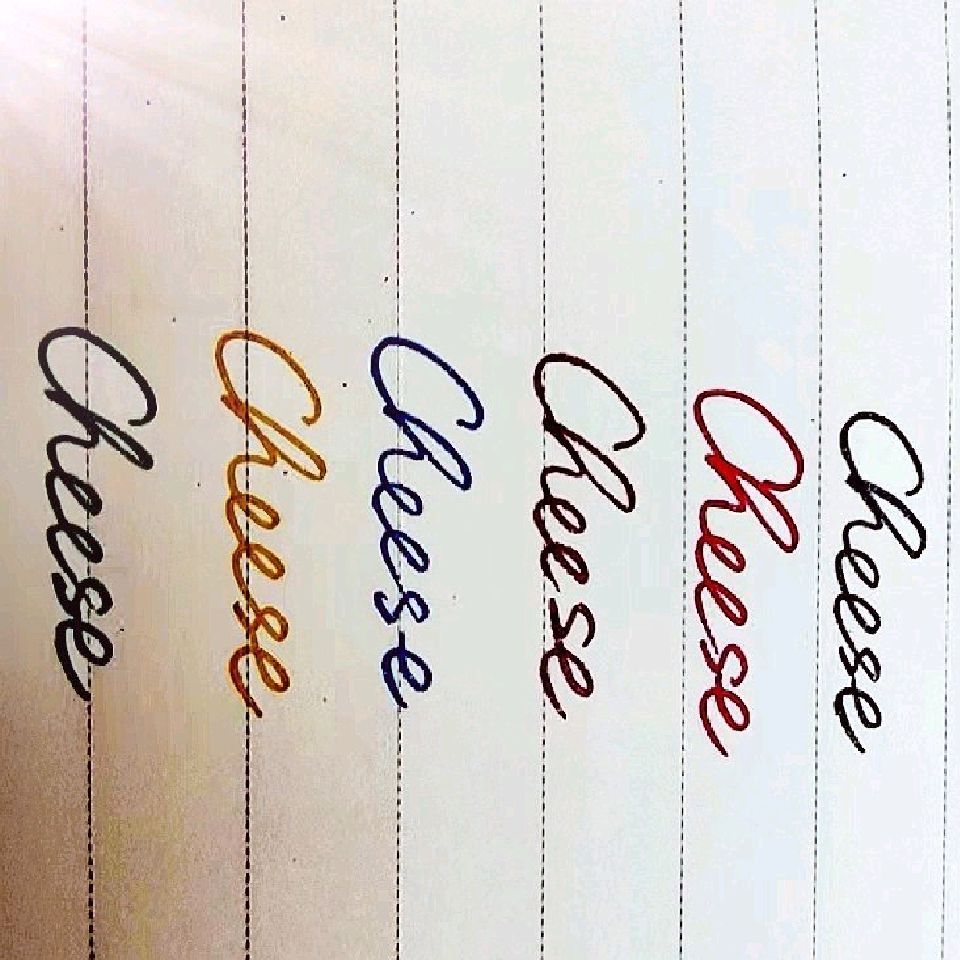 Cheese
Cheese
Cheese
Cheese
Cheese
Cheese